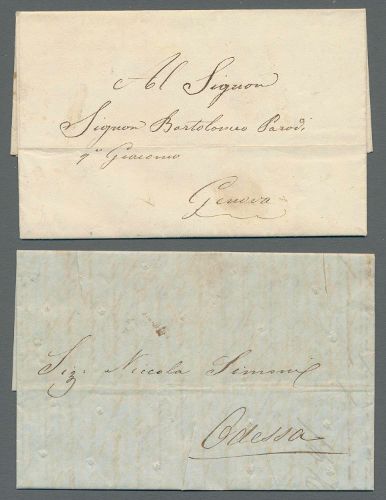 Al Signor
Signor Bartolomeo Parodi
q.m Giacomo
Genova
Sig: Niccola
Odessa